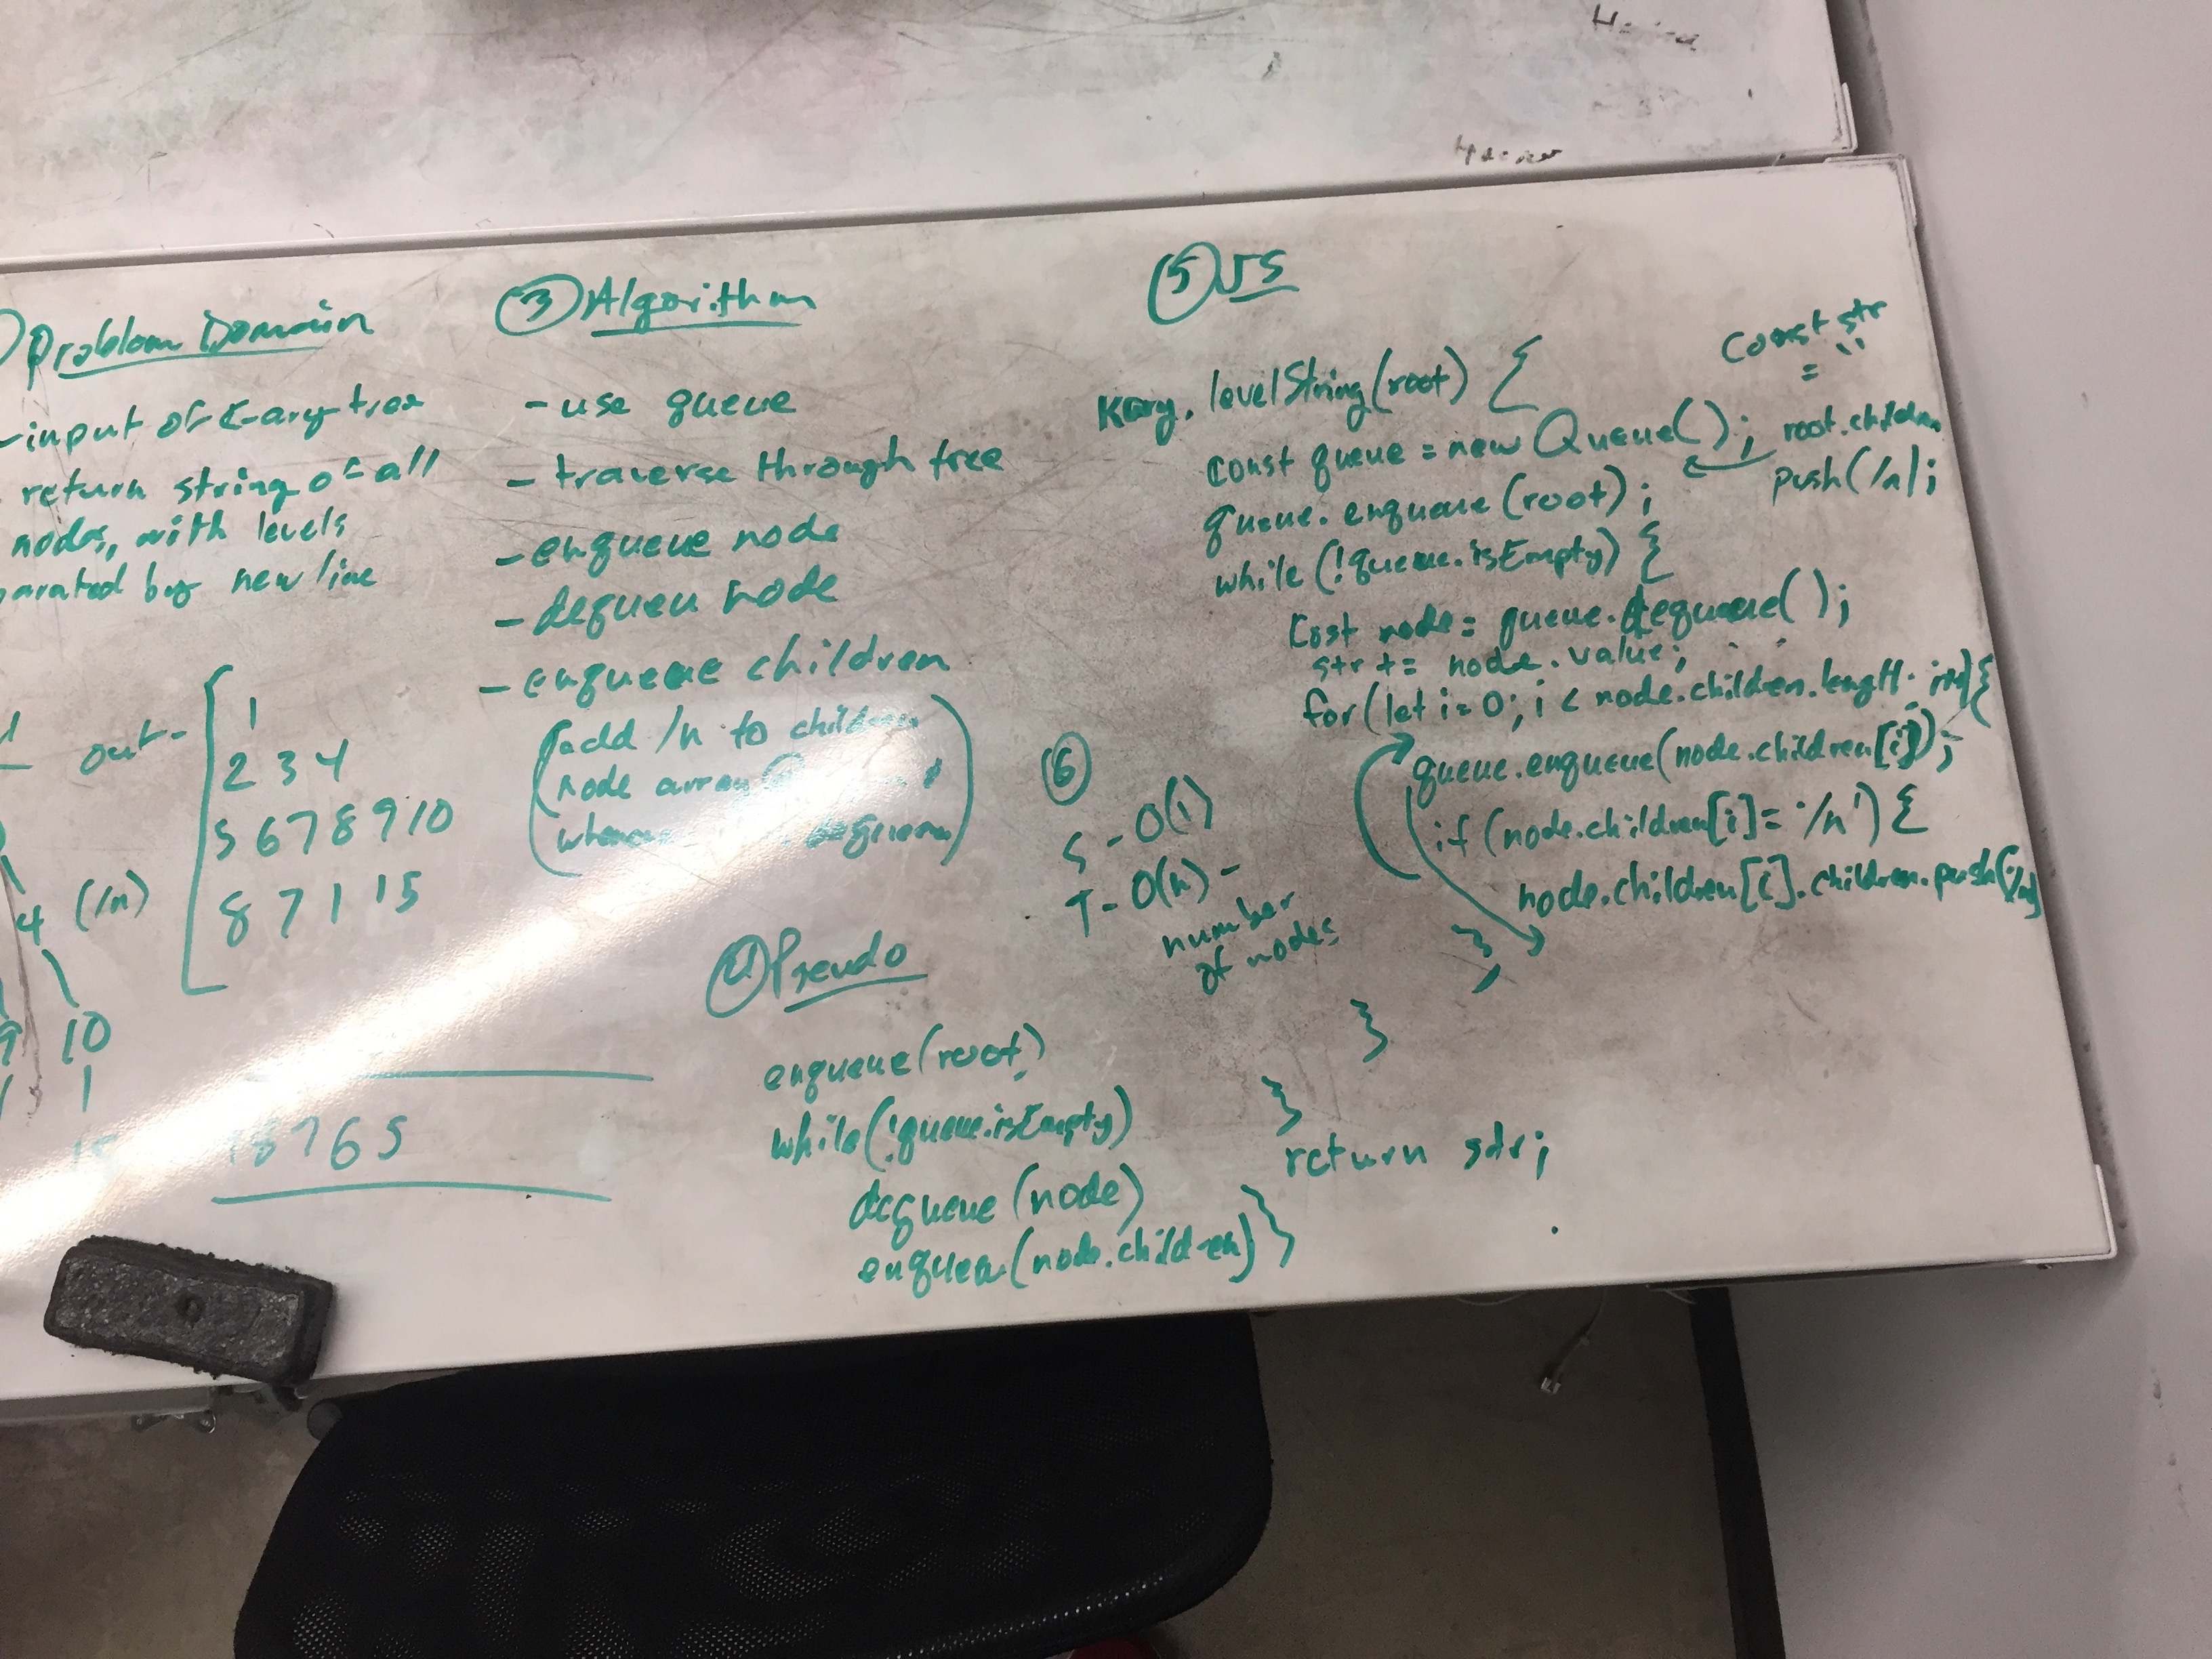 Problem Domain
-input of k-ary tree
return string of all
nodes, with levels
parated by new line
out-
1
2 3 4
5 6 7 8 9 10
8 7 1 15
4 (/n)
9 10
1
8 7 6 5
③ Algorithm
-use queue
- traverse through tree
-enqueue node
-dequeu node
-enqueue children
(add /n to children
node array
④ Pseudo
enqueue(root)
while(!queue.isEmpty)
dequeue(node)
enqueu(node.children)}
⑤ JS
Const str
= ''
Kary. levelString(root) {
const queue = new Queue();
root.children
push(/n);
queue.enqueue(root);
while(!queue.isEmpty) {
Cost node = queue.dequeue();
str += node.value;
for(let i=0; i < node.children.length; i++){
queue.enqueue(node.children[i]);
if (node.children[i]= '/n') {
node.children[i].children.push('/n')
}
}
}
return str;
⑥
S-O(1)
T-O(n) -
number
of nodes